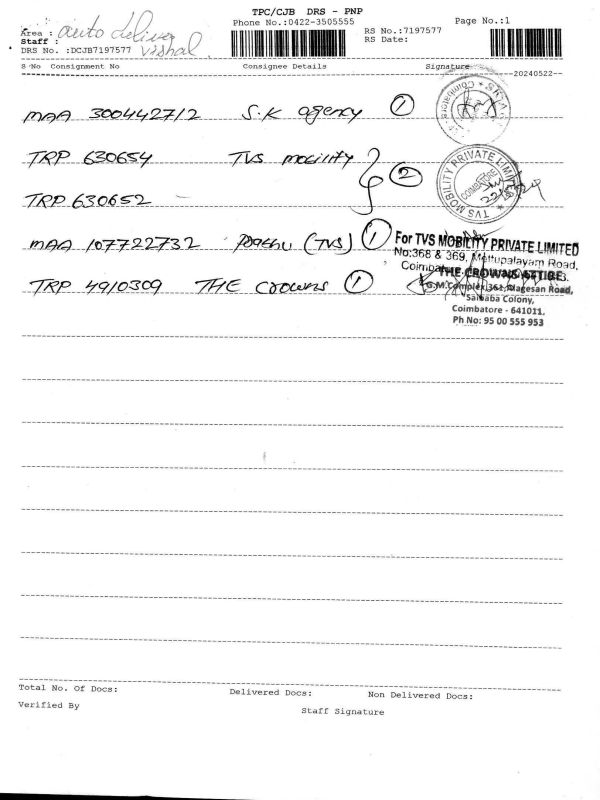 TPC/CJB DRS - PNP
Phone No.:0422-3505555
Page No.:1
Area : auto delivery
Staff : vishal
RS No.:7197577
RS Date:
DRS No. :DCJB7197577
S No Consignment No Consignee Details Signature
20240522
MAA 300442712 S.K agency 1
TRP 630654 TVS mobility 2
TRP 630652
TVS MOBILITY PRIVATE LIMITED
COIMBATORE
MAA 107722732 (TVS) 1
For TVS MOBILITY PRIVATE LIMITED
No:368 & 369, Mettupalayam Road,
TRP 4910309 THE CROWNS 1
THE CROWNS ATTIRE
G.M.Complex, 361, Alagesan Road,
Saibaba Colony,
Coimbatore - 641011.
Ph No: 95 00 555 953
Total No. Of Docs: Delivered Docs: Non Delivered Docs:
Verified By
Staff Signature